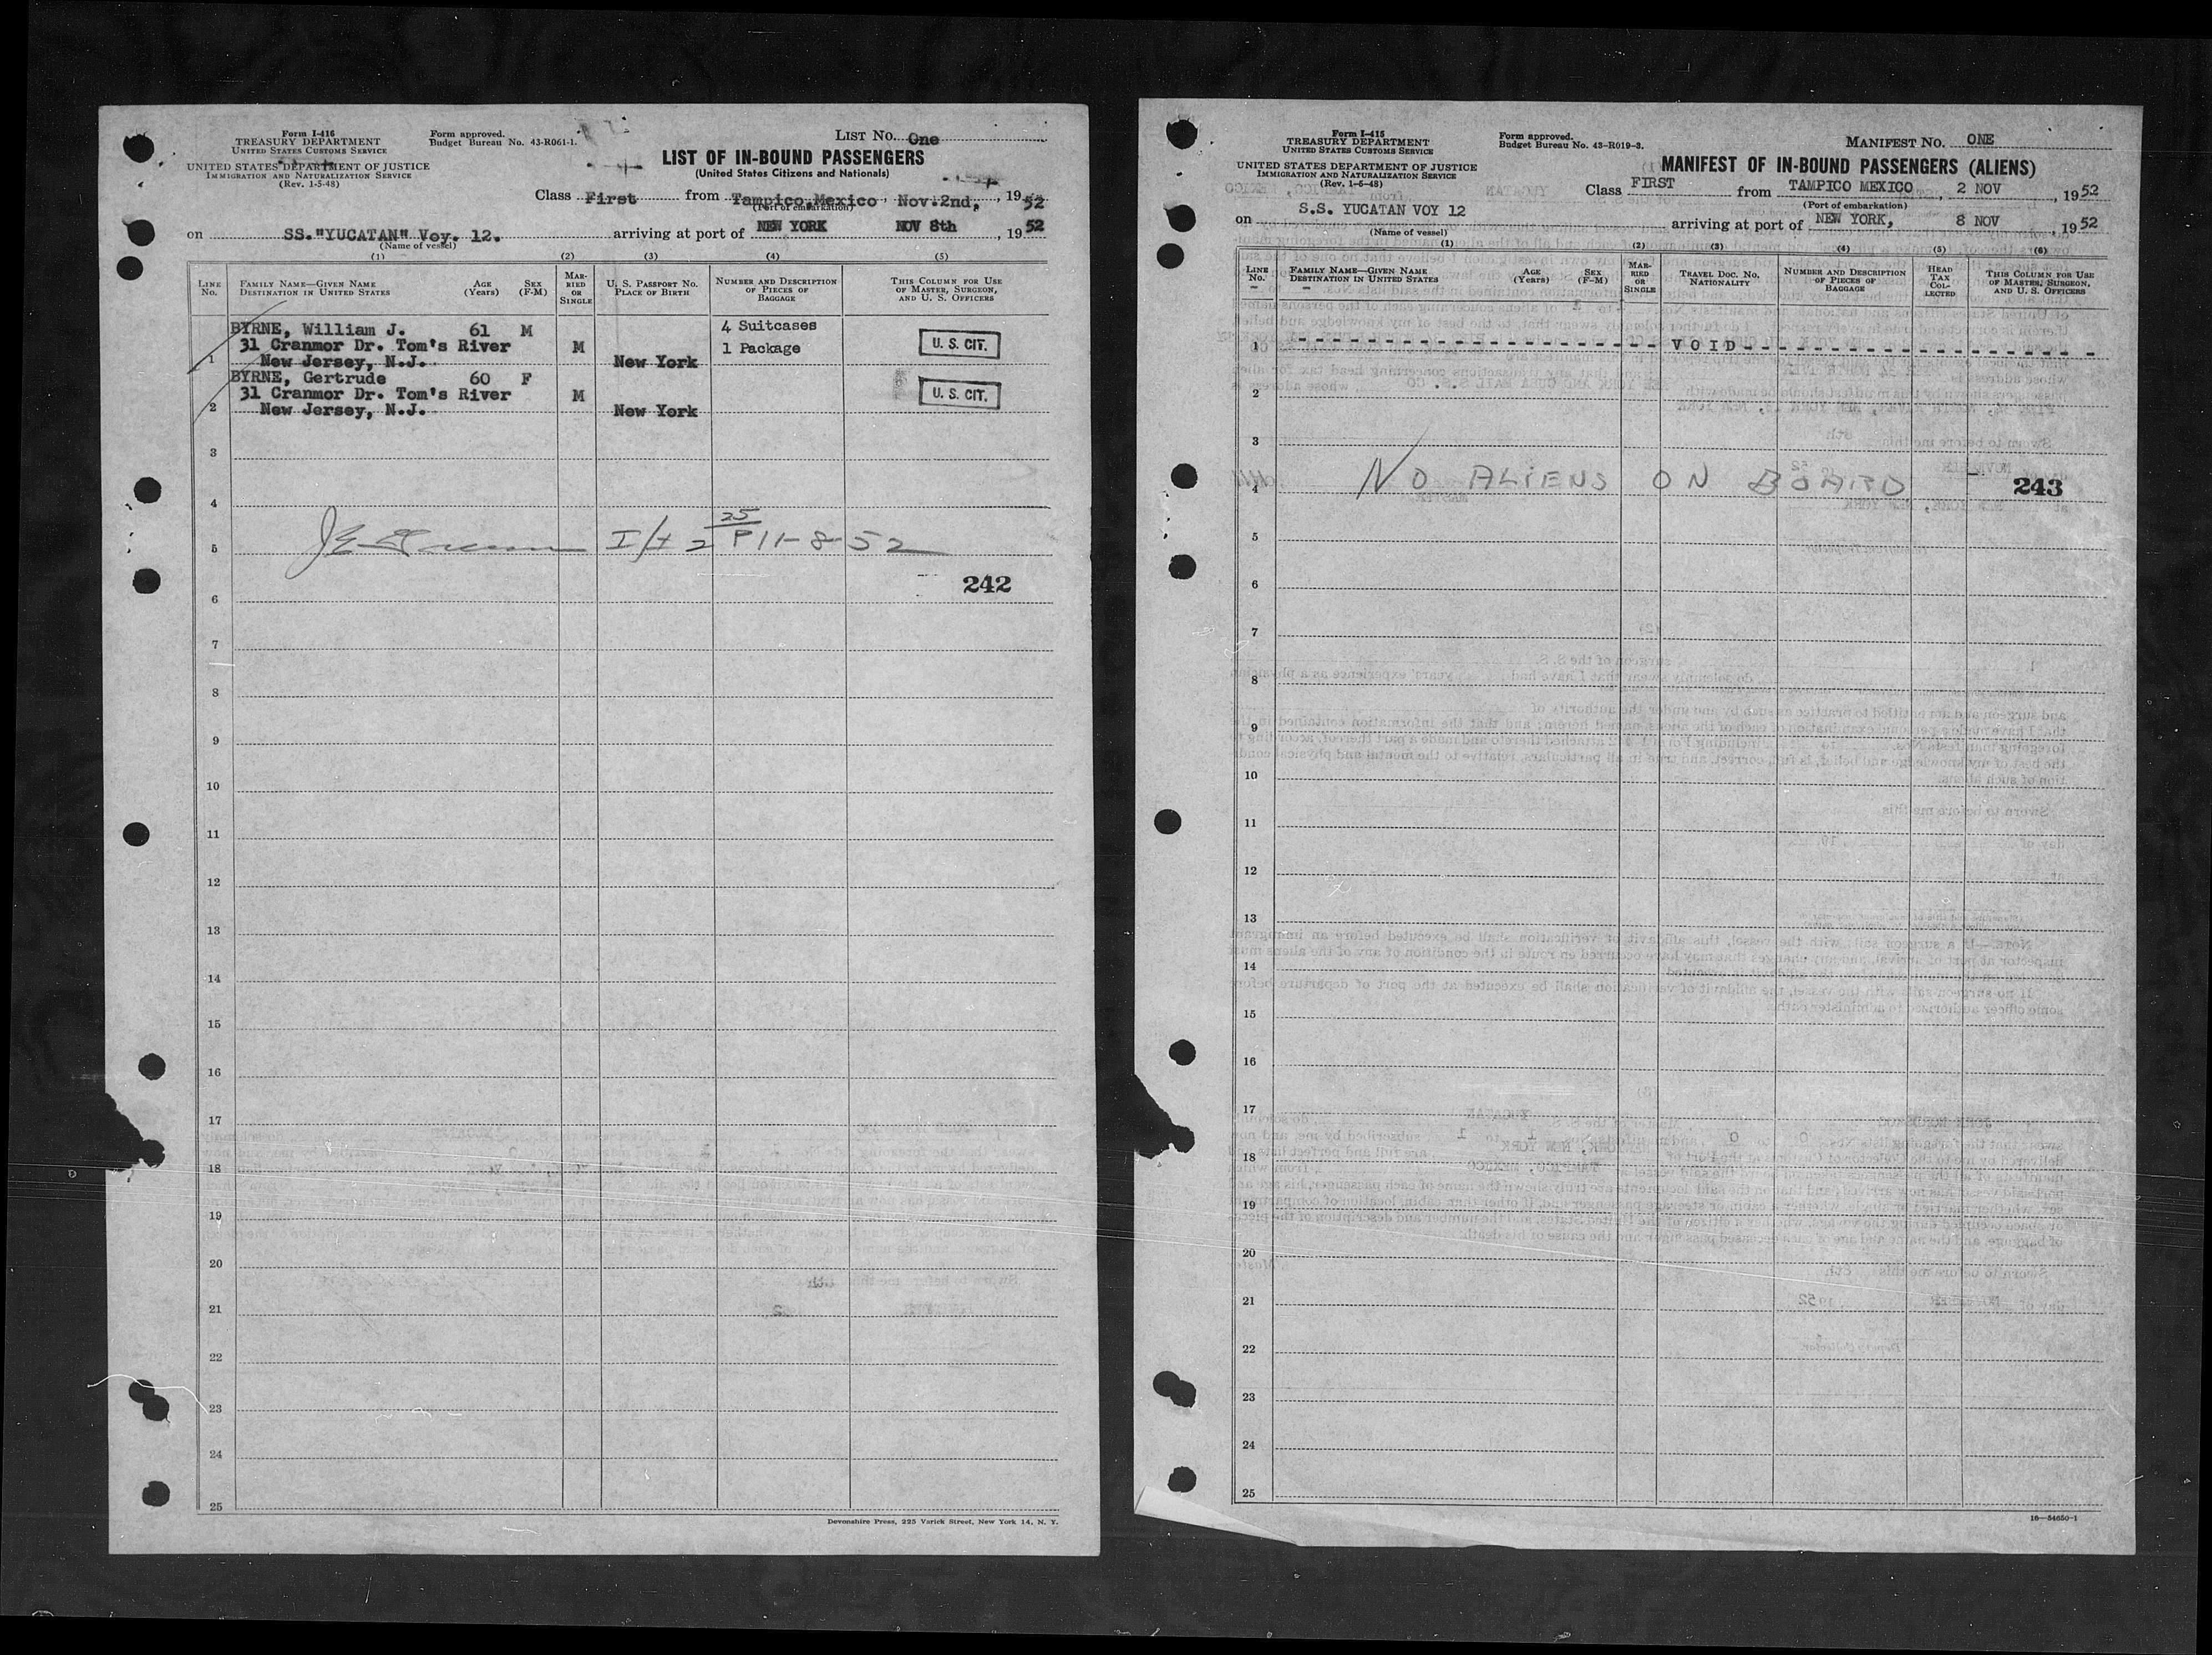 Form I-416
TREASURY DEPARTMENT
UNITED STATES CUSTOMS SERVICE
UNITED STATES DEPARTMENT OF JUSTICE
IMMIGRATION AND NATURALIZATION SERVICE
(Rev. 1-5-48)
Form approved.
Budget Bureau No. 43-R061-1.
LIST No. One
LIST OF IN-BOUND PASSENGERS
(United States Citizens and Nationals)
Class First from Tampico, Mexico, Nov. 2nd, , 19 52
(Port of embarkation)
on SS."YUCATAN" Voy. 12. arriving at port of NEW YORK NOV 8th , 19 52
(Name of vessel)
(1) (2) (3) (4) (5)
LINE No. FAMILY NAME—GIVEN NAME DESTINATION IN UNITED STATES AGE (Years) SEX (F-M) MARRIED OR SINGLE U. S. PASSPORT NO. PLACE OF BIRTH NUMBER AND DESCRIPTION OF PIECES OF BAGGAGE THIS COLUMN FOR USE OF MASTER, SURGEON, AND U. S. OFFICERS
BYRNE, William J. 61 M 4 Suitcases
31 Cranmor Dr. Tom's River M 1 Package U. S. CIT.
1 New Jersey, N.J. New York
BYRNE, Gertrude 60 F
31 Cranmor Dr. Tom's River M U. S. CIT.
2 New Jersey, N.J. New York
3
4
5 11-8-52
242
6
7
8
9
10
11
12
13
14
15
16
17
18
19
20
21
22
23
24
25
Devonshire Press, 225 Varick Street, New York 14, N. Y.
Form I-415
TREASURY DEPARTMENT
UNITED STATES CUSTOMS SERVICE
UNITED STATES DEPARTMENT OF JUSTICE
IMMIGRATION AND NATURALIZATION SERVICE
(Rev. 1-5-48)
Form approved.
Budget Bureau No. 43-R019-3.
MANIFEST No. ONE
MANIFEST OF IN-BOUND PASSENGERS (ALIENS)
Class FIRST from TAMPICO MEXICO , 2 NOV , 19 52
(Port of embarkation)
on S.S. YUCATAN VOY 12 arriving at port of NEW YORK, 8 NOV , 19 52
(Name of vessel)
(1) (2) (3) (4) (5) (6)
LINE No. FAMILY NAME—GIVEN NAME DESTINATION IN UNITED STATES AGE (Years) SEX (F-M) MARRIED OR SINGLE TRAVEL DOC. NO. NATIONALITY NUMBER AND DESCRIPTION OF PIECES OF BAGGAGE HEAD TAX COLLECTED THIS COLUMN FOR USE OF MASTER, SURGEON, AND U. S. OFFICERS
1 VOID
2
3
4 NO ALIENS ON BOARD 243
5
6
7
8
9
10
11
12
13
14
15
16
17
18
19
20
21
22
23
24
25
16—54650-1